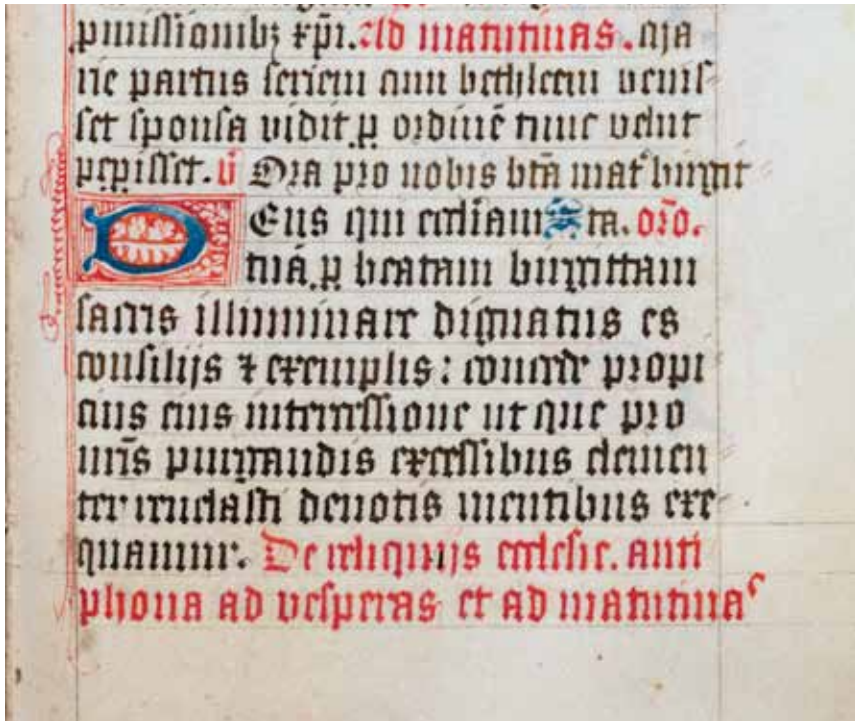 pmissionibꝫ xp̄i. Ad matutinas. Ma
rie partus seriem cum bethleem venis
set sponsa vidit ꝑ ordinē tunc velut
peꝑisset. v̄ Ora pro nobis btā mat̄ birgit
Deus qui eccliam ta. or̄o.
tuā ꝑ beatam birgittam
sacris illuminare dignatus es
consilijs ⁊ exemplis : concede propi
cius eius intercessione ut que pro
nr̄is purgandis excessibus clemen
ter reuelasti deuotis mentibus exe
quamur. De reliquijs ecclesie. anti
phona ad vesperas et ad matutinas